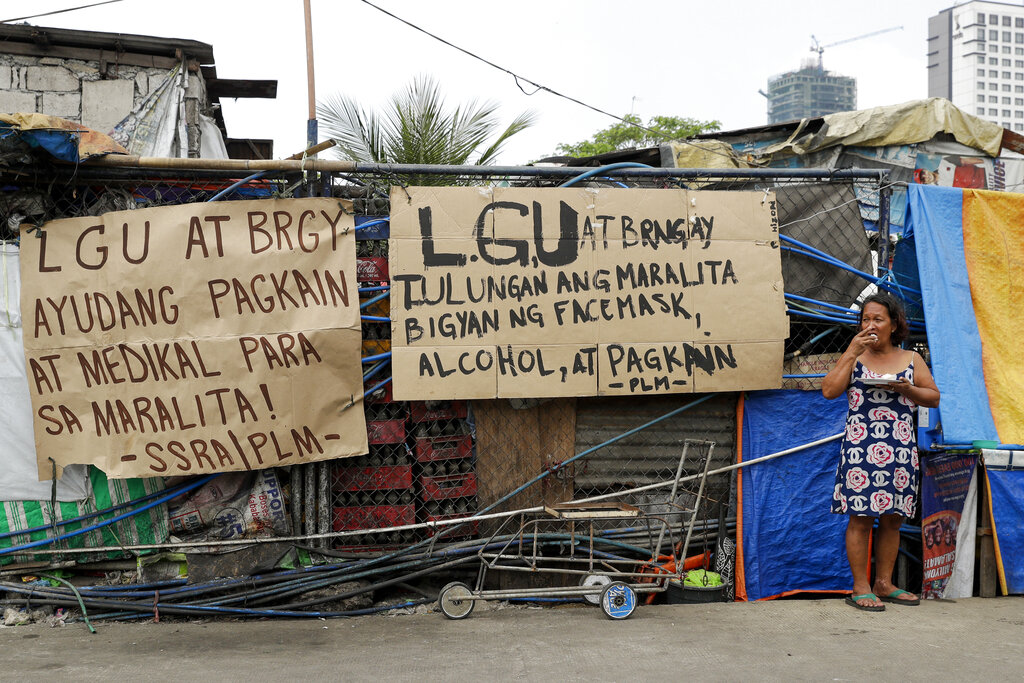 LGU AT BRGY
AYUDANG PAGKAIN
AT MEDIKAL PARA
SA MARALITA!
-SSRA|PLM-
L.G.U AT BRNGAY
TULUNGAN ANG MARALITA
BIGYAN NG FACEMASK,
ALCOHOL, AT PAGKAIN
-PLM-
Coca-Cola